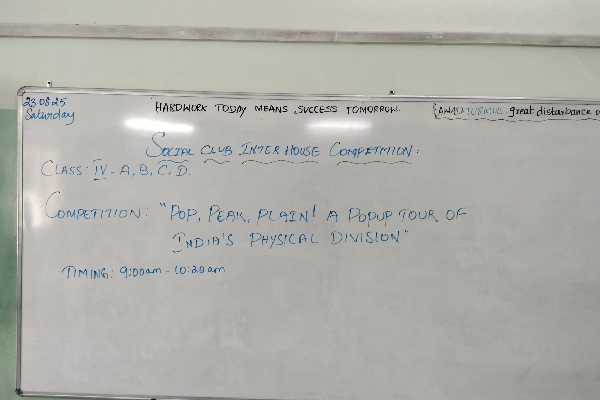 23.08.25
Saturday
HARDWORK TODAY MEANS SUCCESS TOMORROW.
(AWAD) TURMOIL - great disturbance o
SOCIAL CLUB INTER HOUSE COMPETITION.
CLASS: IV - A, B, C, D.
COMPETITION: "POP, PEAK, PLAIN! A POPUP TOUR OF
INDIA'S PHYSICAL DIVISION"
TIMING: 9:00am - 10:20am